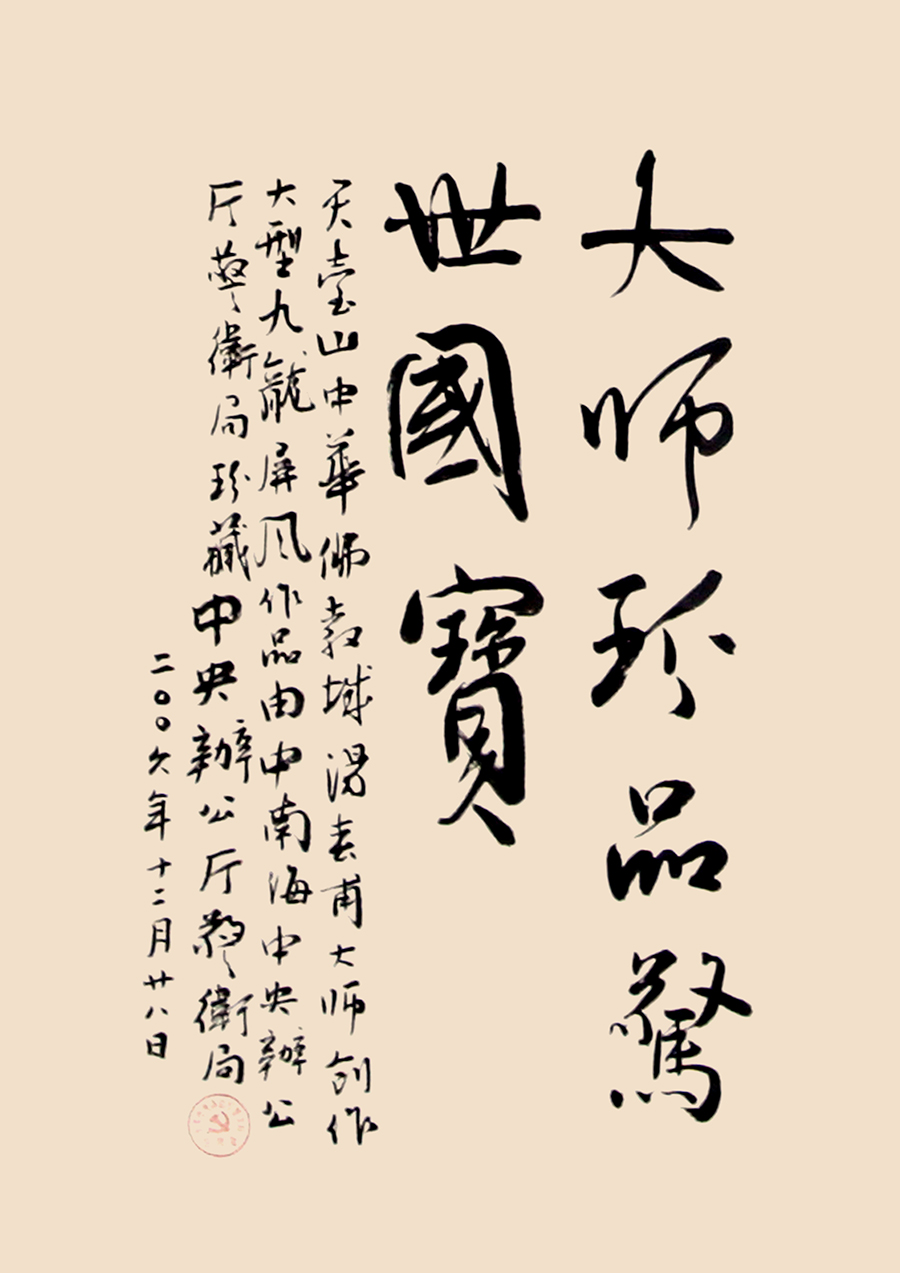 大师珍品驚
世國寶
天臺山中華佛教城湯春甫大师创作
大型九龍屏风作品由中南海中央辦公
厅警衛局珍藏中央辦公厅警衛局
二〇〇六年十二月廿八日